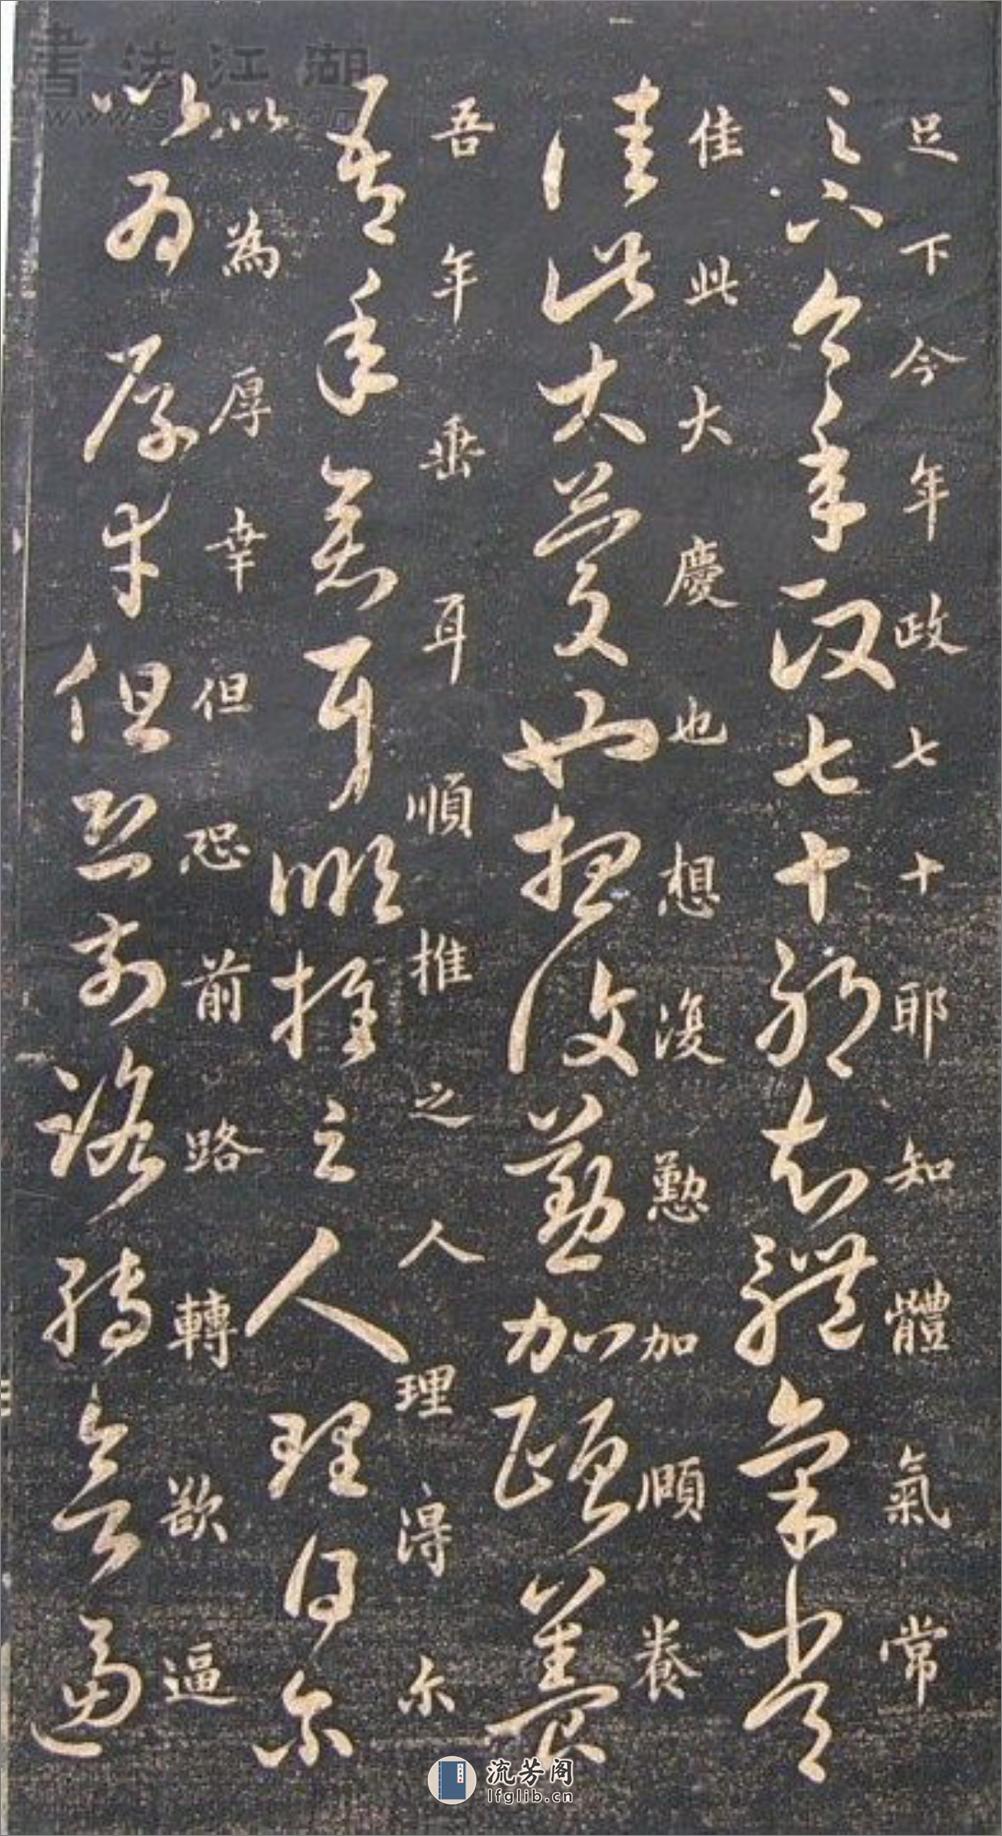 足下今年政七十耶知體氣常
足下今年政七十耶知體氣常
佳此大慶也想復懃加頤養
佳此大慶也想復懃加頤養
吾年垂耳順推之人理得尔
吾年垂耳順推之人理得尔
以為厚幸但恐前路轉欲逼
以為厚幸但恐前路轉欲逼
書法江湖
流芳阁
lfglib.cn